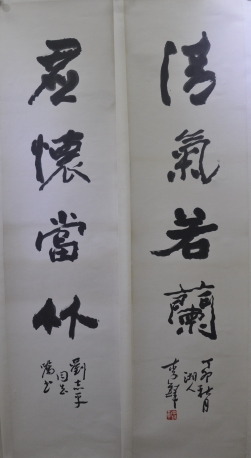 清氣若蘭
丁卯秋月
湘人
李鐸
虛懷當竹
劉志平
同志
囑書